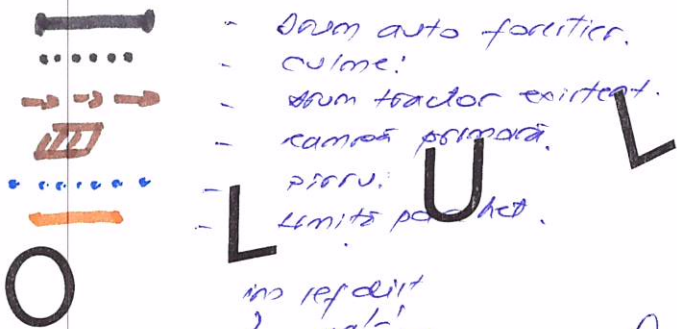 - Drum auto forestier.
- culme.
- drum tractor existent.
- rampă primară.
- pîrîu.
- Limită parchet.
O L U L